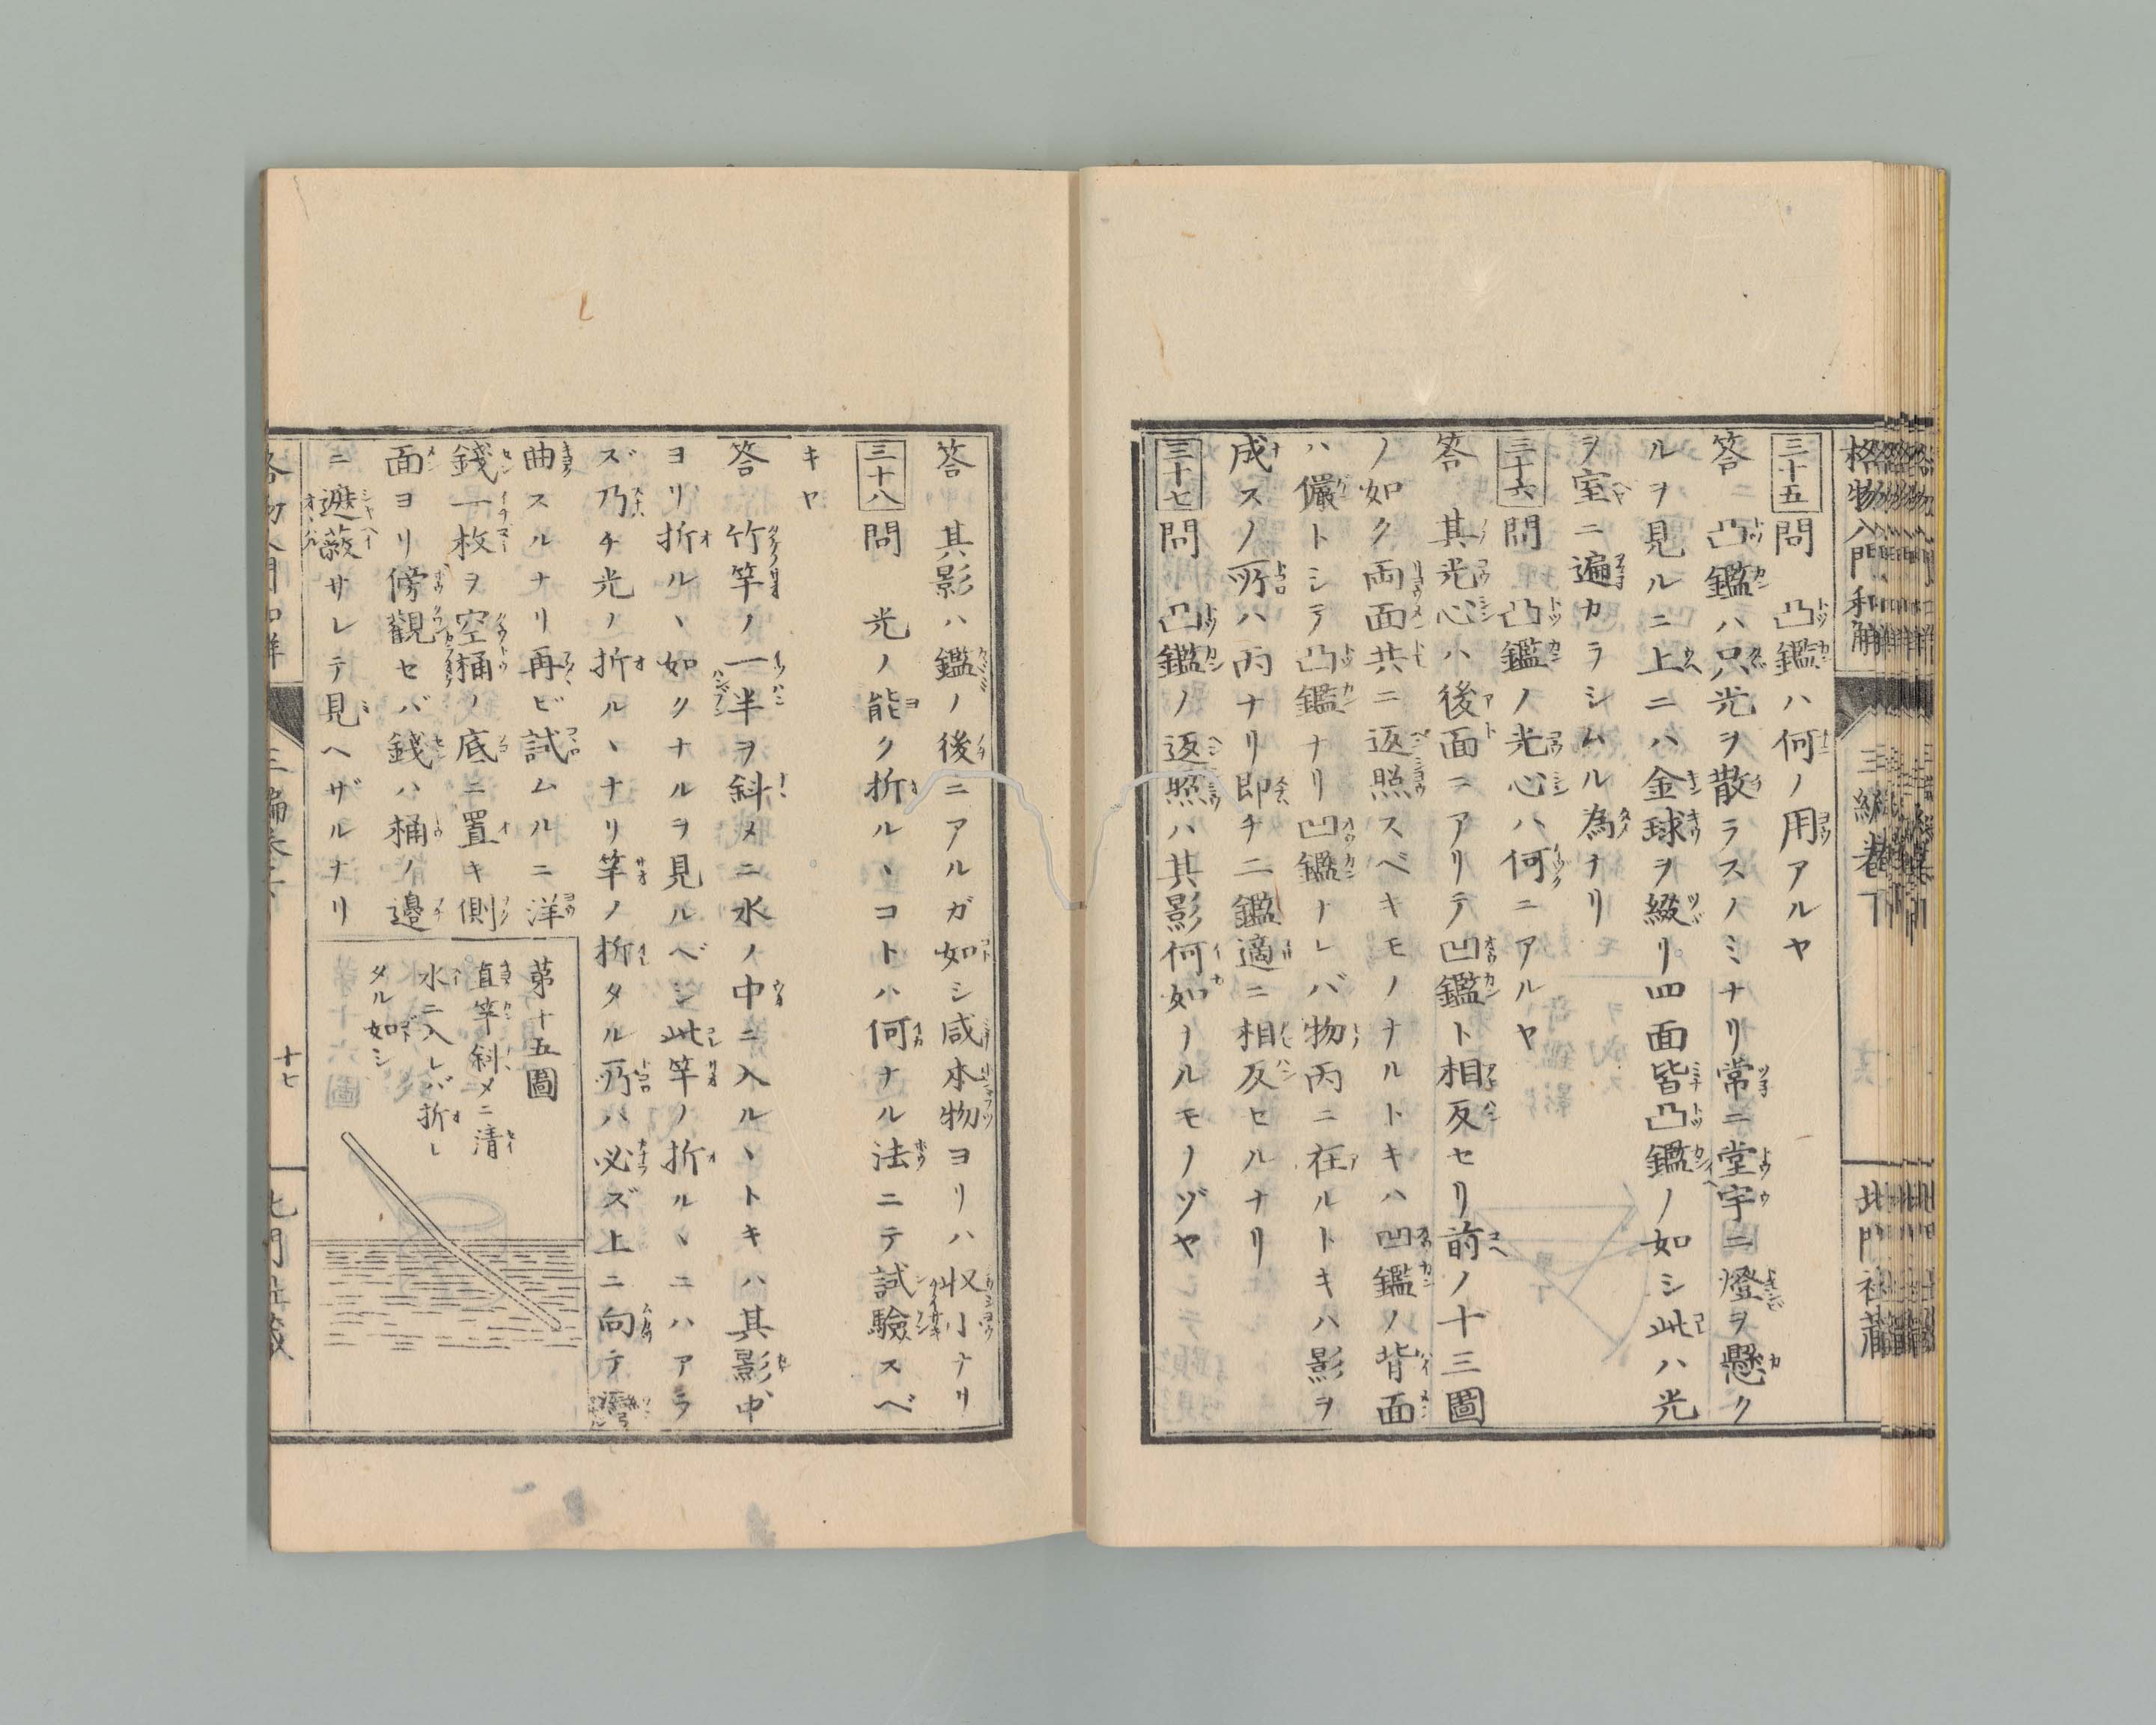 格物入門和解 三編卷下 北門社藏
三十五 問 凸鑑ハ何ノ用アルヤ
答 凸鑑ハ只光ヲ散ラスノミナリ常ニ堂宇ニ燈ヲ懸ク
ルヲ見ルニ上ニハ金球ヲ綴リ四面皆凸鑑ノ如シ此ハ光
ヲ室ニ遍カラシムル為ナリ
三十六 問 凸鑑ノ光心ハ何ニアルヤ
答 其光心ハ後面ニアリテ凹鑑ト相反セリ前ノ十三圖
ノ如ク両面共ニ返照スベキモノナルトキハ凹鑑ノ背面
ハ儼トシテ凸鑑ナリ凹鑑ナレバ物丙ニ在ルトキハ影ヲ
成スノ所ハ丙ナリ即チ二鑑適ニ相反セルナリ
三十七 問 凸鑑ノ返照ハ其影何如ナルモノゾヤ
答 其影ハ鑑ノ後ニアルガ如シ咸本物ヨリハ収小ナリ
三十八 問 光ノ能ク折ルヽコトハ何ナル法ニテ試驗スベ
キヤ
答 竹竿ノ一半ヲ斜メニ水ノ中ニ入ルヽトキハ其影中
ヨリ折ルヽ如クナルヲ見ルベシ此竿ノ折ルヽニハアラ
ズ乃チ光ノ折ルヽナリ竿ノ折タル所ハ必ズ上ニ向テ彎
曲スルナリ再ビ試ムルニ洋
錢一枚ヲ空桶ノ底ニ置キ側
面ヨリ傍觀セバ錢ハ桶ノ邊
ニ遮蔽サレテ見ヘザルナリ
第十五圖
直竿斜メニ清
水ニ入レバ折レ
タル如シ
格物入門和解 三編卷下 十七 北門社藏